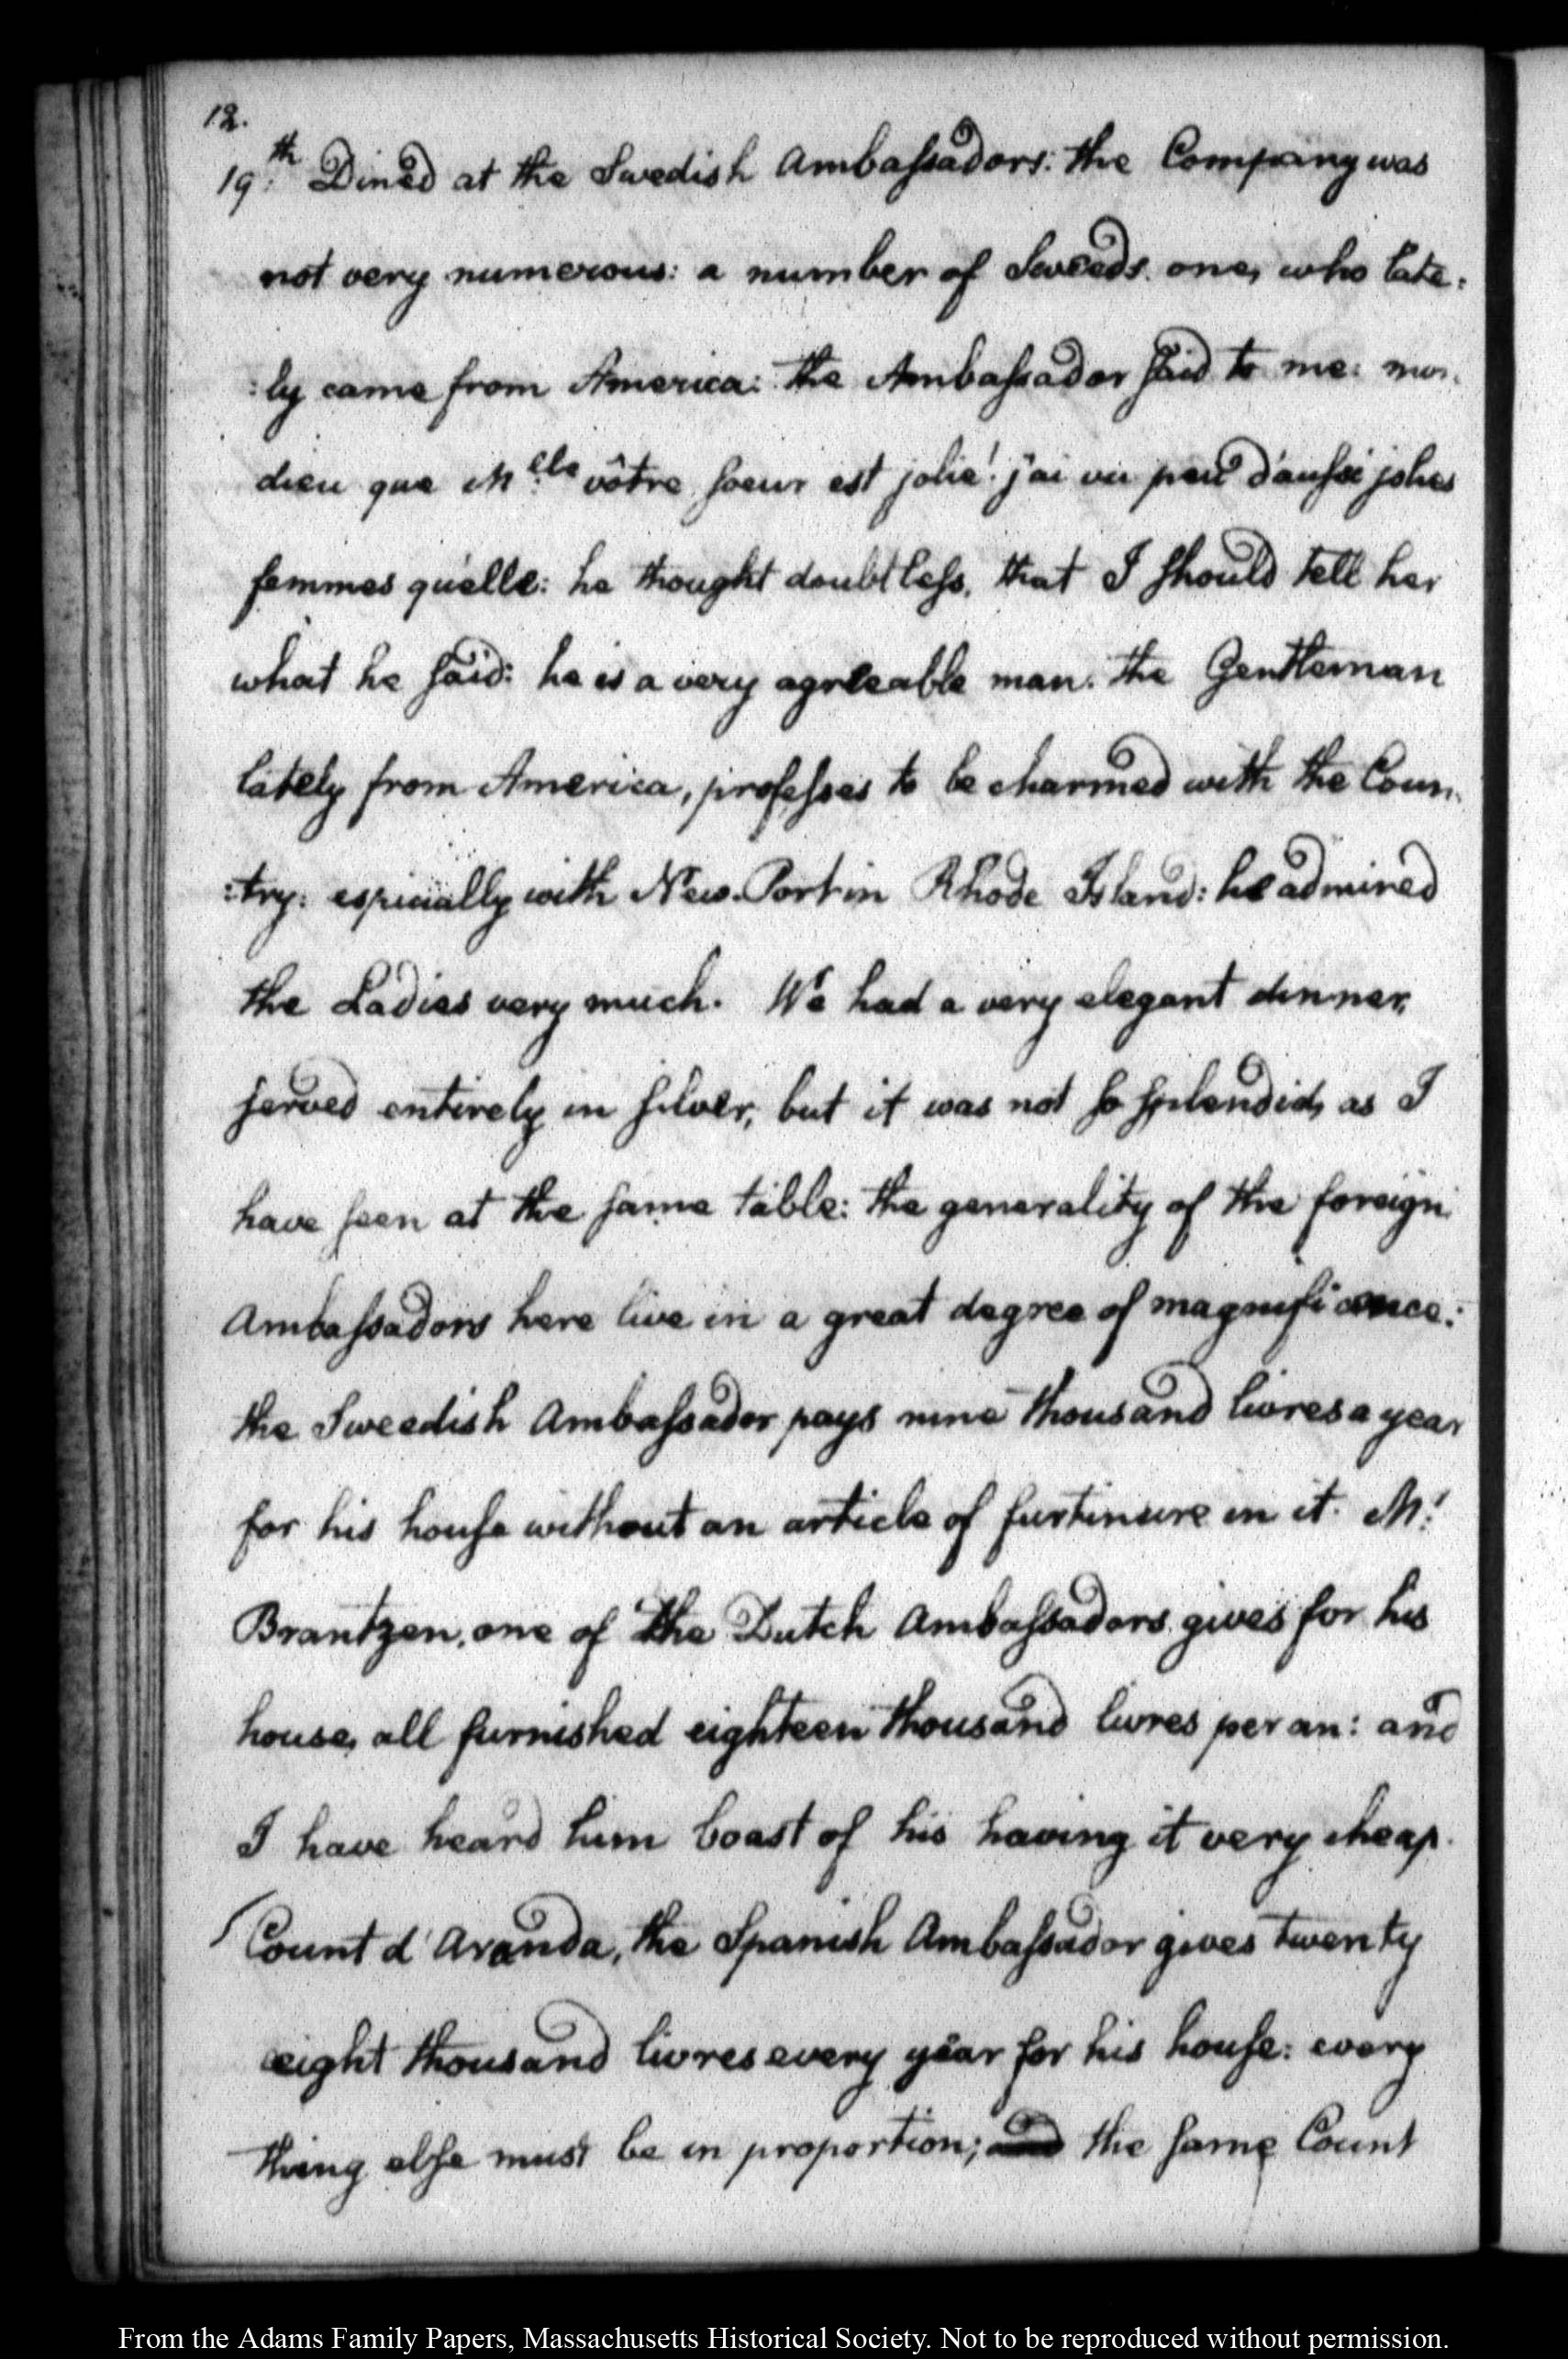 12.
19.th Dined at the Swedish Ambassadors: the Company was
not very numerous: a number of Sweeds. one, who late:
:ly came from America: the Ambassador said to me: mon
dieu que M.elle vôtre soeur est jolie! j'ai vu peu d'aussi jolies
femmes qu'elle: he thought doubtless, that I should tell her
what he said: he is a very agreeable man. the Gentleman
lately from America, professes to be charmed with the Coun:
:try: especially with New-Port in Rhode Island: he admired
the Ladies very much. We had a very elegant dinner,
served entirely in silver, but it was not so splendid, as I
have seen at the same table: the generality of the foreign
Ambassadors here live in a great degree of magnificence:
the Sweedish Ambassador pays nine thousand livres a year
for his house without an article of furtinure in it. Mr.
Brantzen, one of the Dutch Ambassadors gives for his
house, all furnished eighteen thousand livres per an: and
I have heard him boast of his having it very cheap.
Count d'Aranda, the Spanish Ambassador gives twenty
eight thousand livres every year for his house: every
thing else must be in proportion; and the same Count
From the Adams Family Papers, Massachusetts Historical Society. Not to be reproduced without permission.